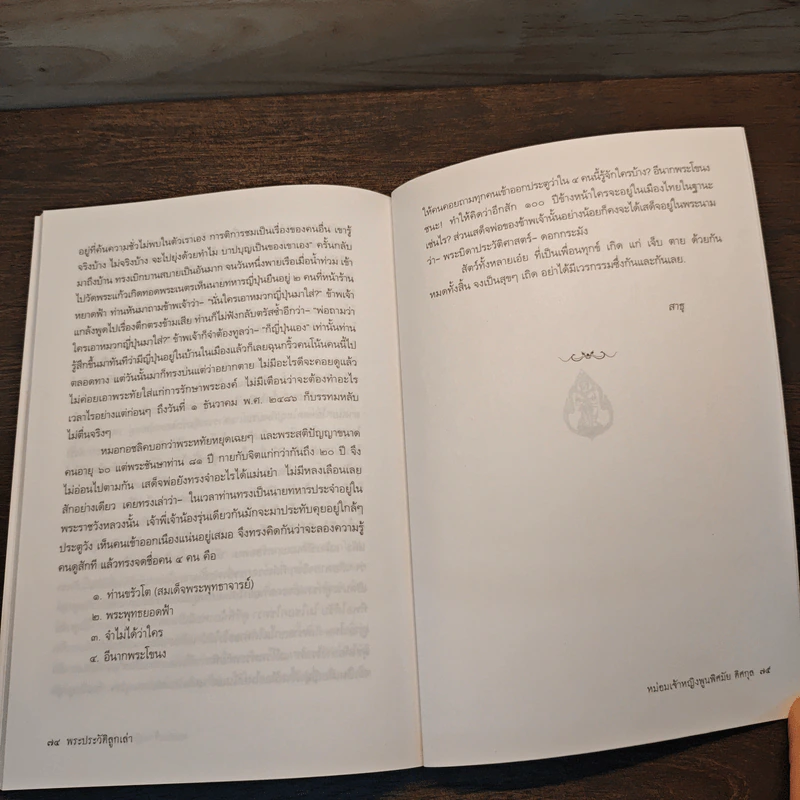 อยู่ที่ต้นความชั่วไม่พบในตัวเราเอง การติการชมเป็นเรื่องของคนอื่น เขารู้
จริงบ้าง ไม่จริงบ้าง จะไปยุ่งด้วยทำไม บาปบุญเป็นของเขาเอง” ครั้นกลับ
มาถึงบ้าน ทรงเบิกบานสบายเป็นอันมาก จนวันหนึ่งพายเรือเมื่อน้ำท่วม เข้า
ไปวัดพระแก้วเกิดทอดพระเนตรเห็นนายทหารญี่ปุ่นยืนอยู่ ๒ คนที่หน้าร้าน
หยาดฟ้า ท่านหันมาถามข้าพเจ้าว่า- “นั่นใครเอาหมวกญี่ปุ่นมาใส่?” ข้าพเจ้า
แกล้งพูดไปเรื่องตึกตรงข้ามเสีย ท่านก็ไม่ฟังกลับตรัสซ้ำอีกว่า- “พ่อถามว่า
ใครเอาหมวกญี่ปุ่นมาใส่?” ข้าพเจ้าก็จำต้องทูลว่า- “ก็ญี่ปุ่นเอง” เท่านั้นท่าน
รู้สึกขึ้นมาทันทีว่ามีญี่ปุ่นอยู่ในบ้านในเมืองแล้วก็เลยฉุนกริ้วคนโน้นคนนี้ไป
ตลอดทาง แต่วันนั้นมาก็ทรงบ่นแต่ว่าอยากตาย ไม่มีอะไรดีจะคอยดูแล้ว
ไม่ค่อยเอาพระทัยใส่แก่การรักษาพระองค์ ไม่มีเตือนว่าจะต้องทำอะไร
เวลาไรอย่างแต่ก่อนๆ ถึงวันที่ ๑ ธันวาคม พ.ศ. ๒๔๘๖ ก็บรรทมหลับ
ไม่ตื่นจริงๆ
หมอกอชลิคบอกว่าพระหทัยหยุดเฉยๆ และพระสติปัญญาขนาด
คนอายุ ๖๐ แต่พระชันษาท่าน ๘๑ ปี กายกับจิตแก่กว่ากันถึง ๒๐ ปี จึง
ไม่อ่อนไปตามกัน เสด็จพ่อยังทรงจำอะไรได้แม่นยำ ไม่มีหลงเลือนเลย
สักอย่างเดียว เคยทรงเล่าว่า- ในเวลาท่านทรงเป็นนายทหารประจำอยู่ใน
พระราชวังหลวงนั้น เจ้าพี่เจ้าน้องรุ่นเดียวกันมักจะมาประทับคุยอยู่ใกล้ๆ
ประตูวัง เห็นคนเข้าออกเนืองแน่นอยู่เสมอ จึงทรงคิดกันว่าจะลองความรู้
คนดูสักที แล้วทรงจดชื่อคน ๔ คน คือ
๑. ท่านขรัวโต (สมเด็จพระพุทธาจารย์)
๒. พระพุทธยอดฟ้า
๓. จำไม่ได้ว่าใคร
๔. อีนากพระโขนง
๗๔ พระประวัติลูกเล่า
ให้คนคอยถามทุกคนเข้าออกประตูว่าใน ๔ คนนี้รู้จักใครบ้าง? อีนากพระโขนง
ชนะ! ทำให้คิดว่าอีกสัก ๑๐๐ ปีข้างหน้าใครจะอยู่ในเมืองไทยในฐานะ
เช่นไร? ส่วนเสด็จพ่อของข้าพเจ้านั้นอย่างน้อยก็คงจะได้เสด็จอยู่ในพระนาม
ว่า- พระบิดาประวัติศาสตร์- ดอกกระมัง
สัตว์ทั้งหลายเอ๋ย ที่เป็นเพื่อนทุกข์ เกิด แก่ เจ็บ ตาย ด้วยกัน
หมดทั้งสิ้น จงเป็นสุขๆ เถิด อย่าได้มีเวรกรรมซึ่งกันและกันเลย.
สาธุ
หม่อมเจ้าหญิงพูนพิศมัย ดิศกุล ๗๕